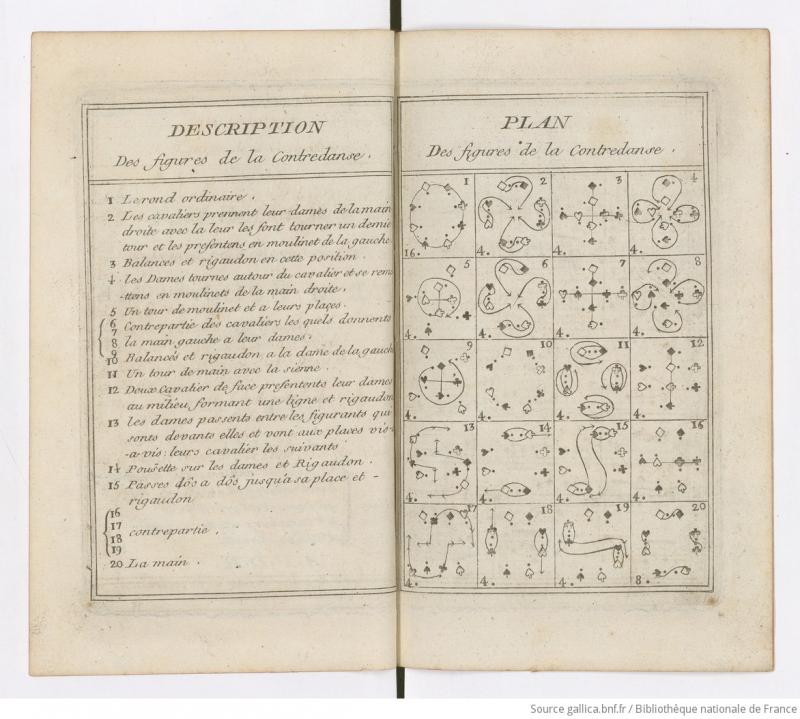 DESCRIPTION
Des figures de la Contredanse.
1 Le rond ordinaire.
2 Les cavaliers prennent leur dames de la main
droite avec la leur les font tourner un demie
tour et les presentens en moulinet de la gauche
3 Balances et rigaudon en cette position.
4 les Dames tournes autour du cavalier et se reme
-ttens en moulinets de la main droite.
5 Un tour de moulinet et a leurs places.
6 Contrepartie des cavaliers les quels donnents
7
8 la main gauche a leur dames.
9
10 Balancés et rigaudon a la dame de la gauch
11 Un tour de main avec la sienne.
12 Deux Cavalier de face presentents leur dames
au milieu, formant une ligne et rigaudon
13 les dames passents entre les figurants qui
sonts devants elles et vont aux places vis-
-a-vis: leurs cavalier les suivants
14 Poussette sur les dames et Rigaudon.
15 Passes dôs a dôs jusqu'a sa place et -
rigaudon
16
17 contrepartie.
18
19
20 La main.
PLAN
Des figures de la Contredanse.
1 2 3 4
16. 4. 4. 4.
5 6 7 8
4. 4. 4. 4.
9 10 11 12
4. 4. 4. 4.
13 14 15 16
4. 4. 4. 4.
17 18 19 20
4. 4. 4. 8.
Source gallica.bnf.fr / Bibliothèque nationale de France